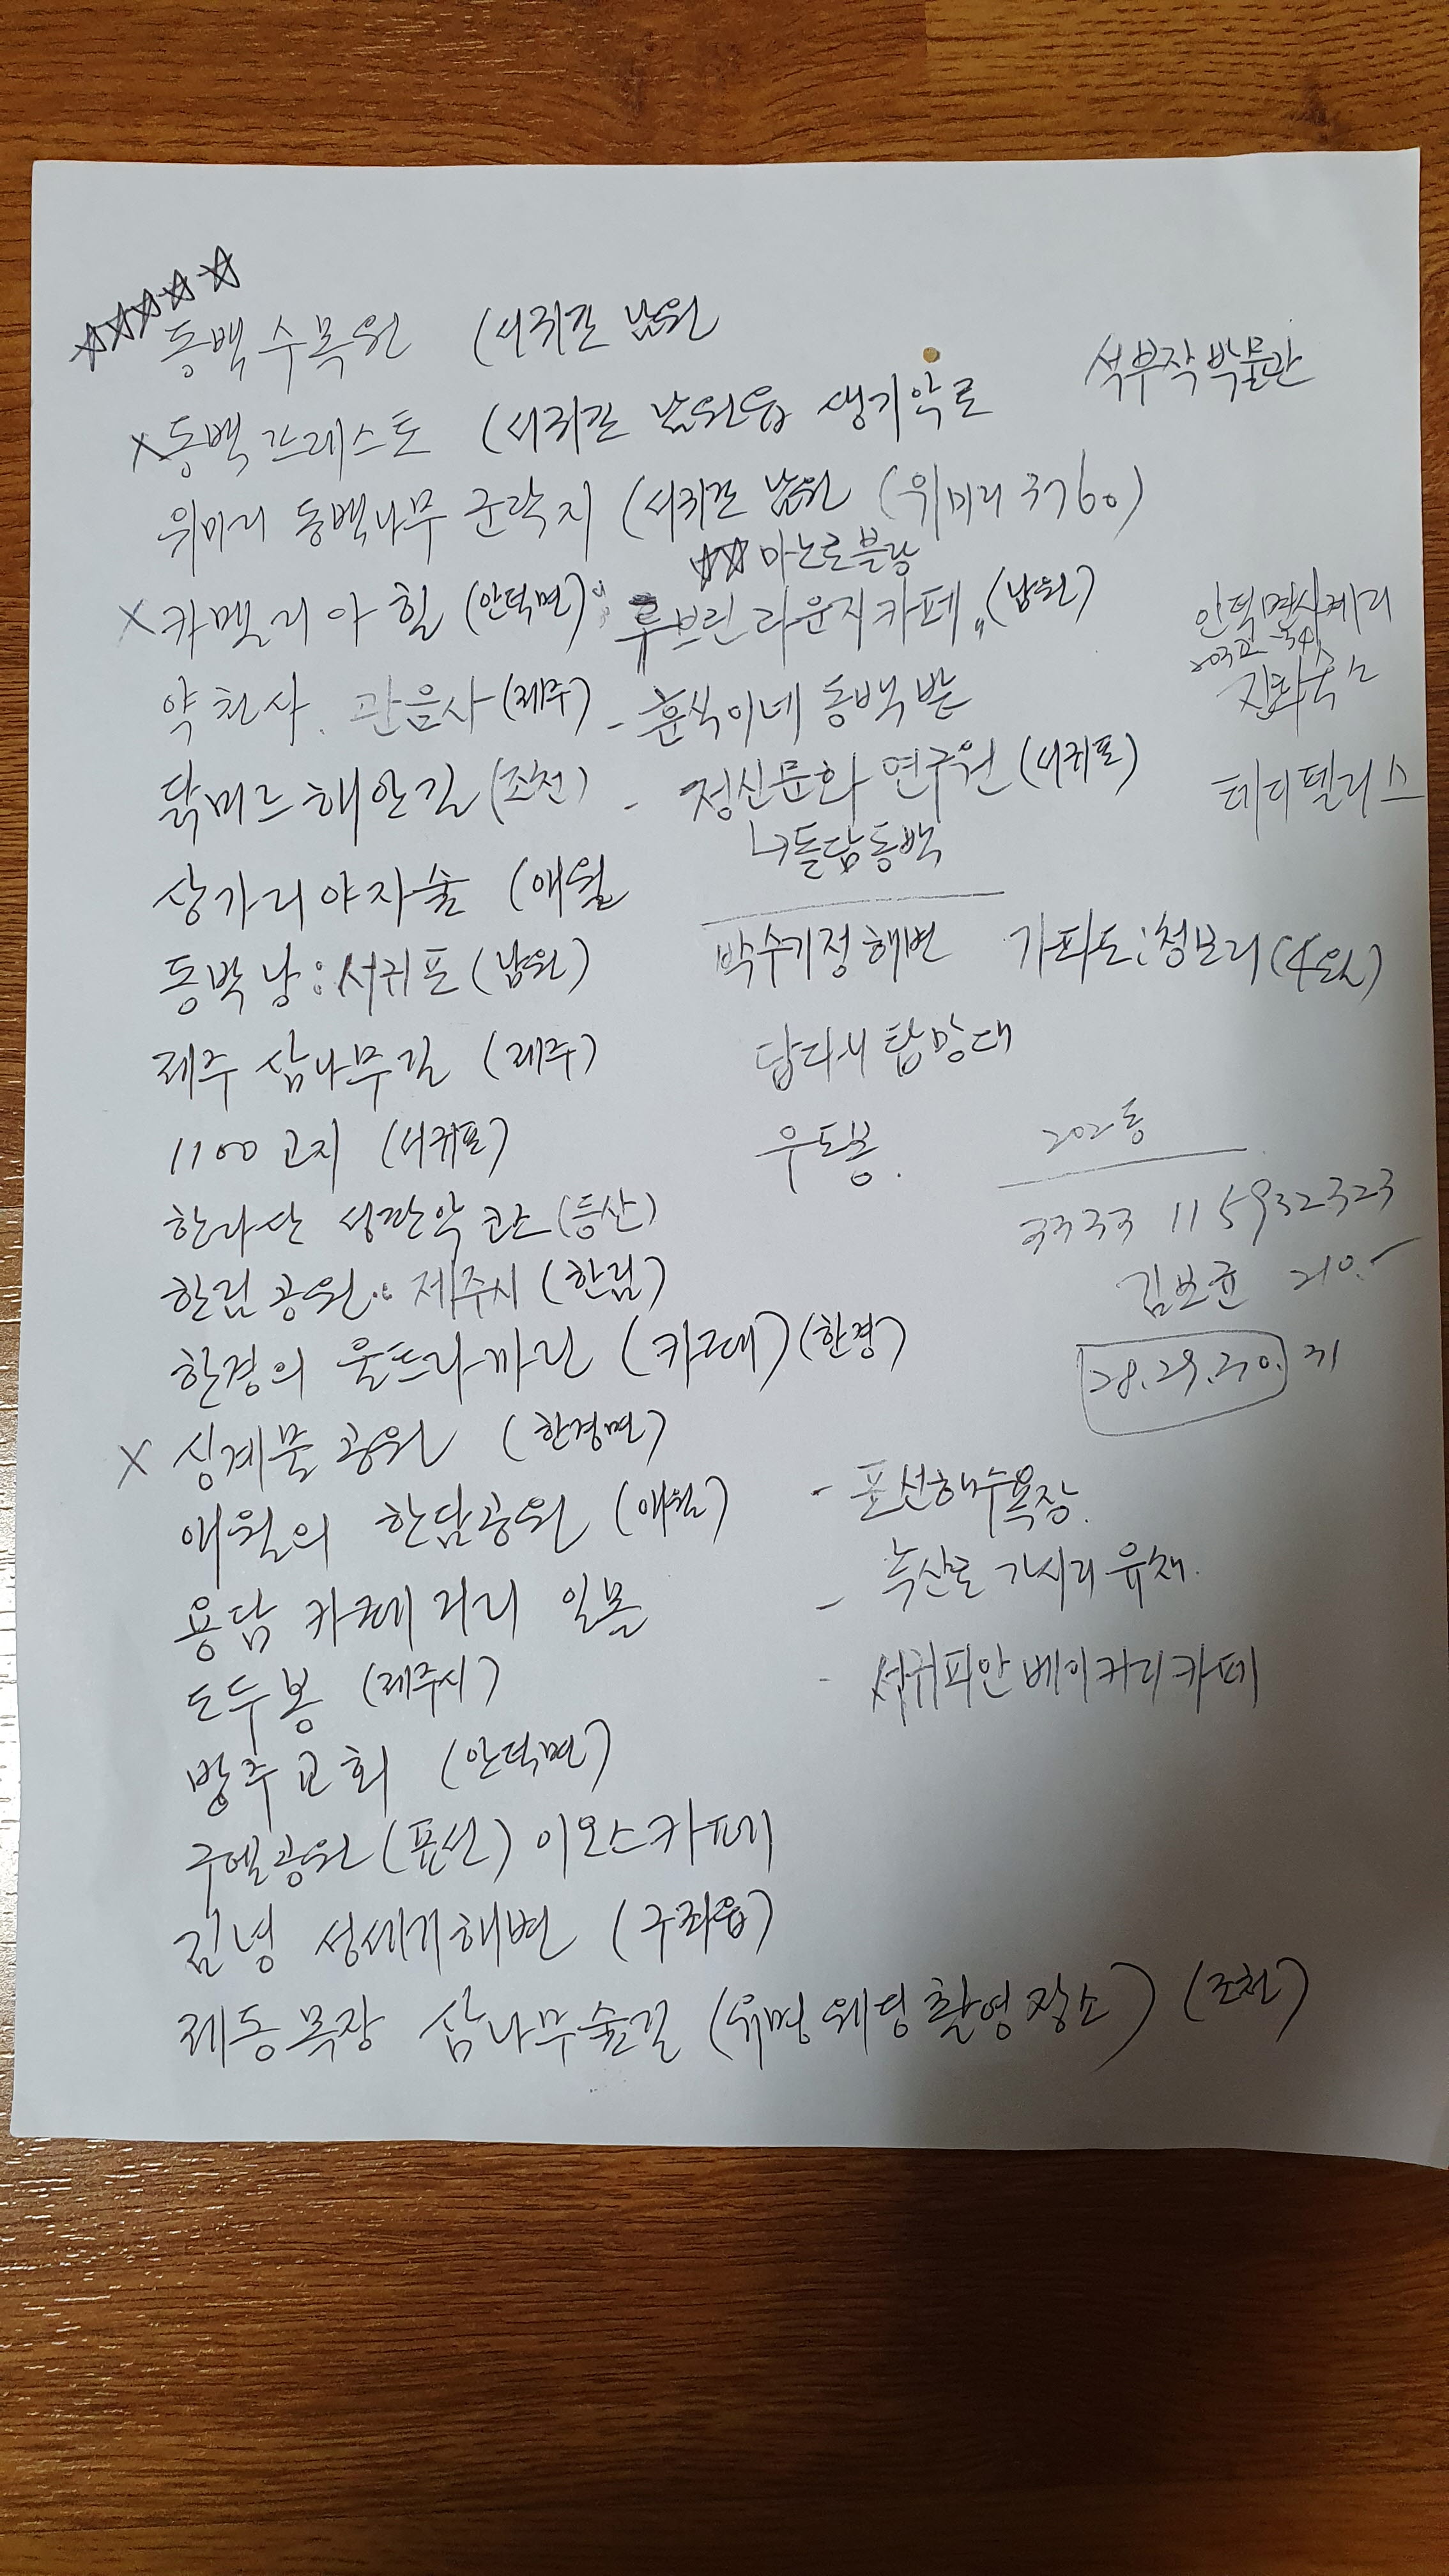 ☆☆☆☆☆
동백수목원 (서귀포 남원
석부작박물관
X 동백 포레스트 (서귀포 남원읍 생기악로
위미리 동백나무 군락지 (서귀포 남원 (위미리 3760)
☆☆ 마노르블랑
X 카멜리아 힐 (안덕면) 루브린 라운지카페 (남원)
안덕면사계리
약천사. 관음사 (제주) - 훈식이네 동백밭
닭머르해안길 (조천) - 정신문화 연구원 (서귀포)
테디펠리스
↳ 돌담동백
상가리야자숲 (애월
박수기정해변 가파도: 청보리 (4월)
동박낭: 서귀포 (남원)
제주 삼나무길 (제주)
답다니 탑망대
1100 고지 (서귀포)
우도봉.
202동
한라산 성판악 코스 (등산)
3333 11 5932323
한림공원: 제주시 (한림)
김보균 30.-
한경의 울트라마린 (카페) (한경)
28.29.30. 31
X 싱계물 공원 (한경면)
애월의 한담공원 (애월)
- 표선해수욕장.
용담 카페거리 일몰
- 녹산로 가시리 유채.
도두봉 (제주시)
- 서귀피안베이커리카페
방주교회 (안덕면)
구엘공원 (표선) 이오스카페
김녕 성세기해변 (구좌읍)
제동목장 삼나무숲길 (유명웨딩촬영장소) (조천)